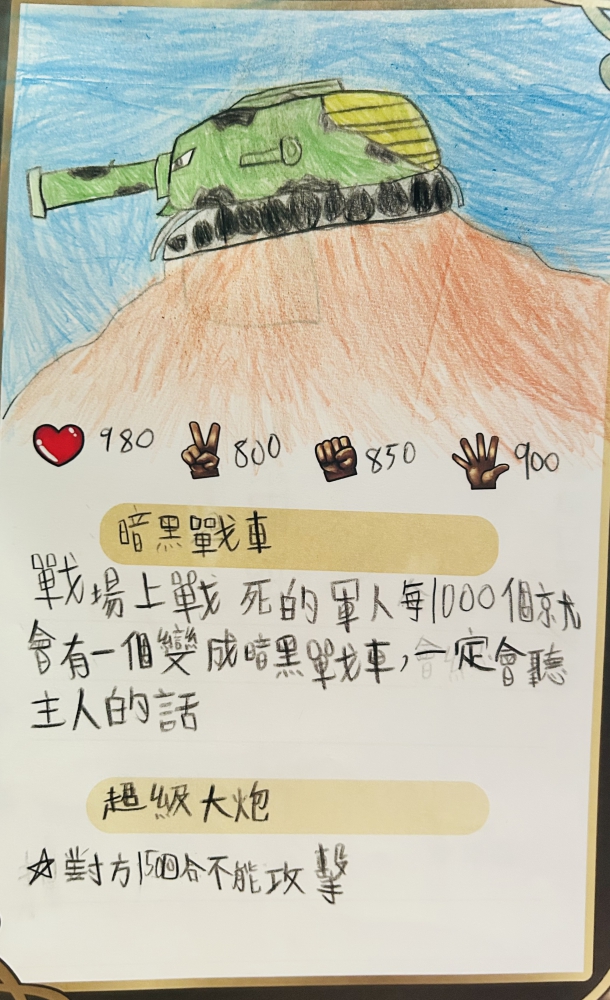 980 800 850 900
暗黑戰車
戰場上戰死的軍人每1000個就
會有一個變成暗黑戰車,一定會聽
主人的話
超級大炮
☆對方150回合不能攻擊